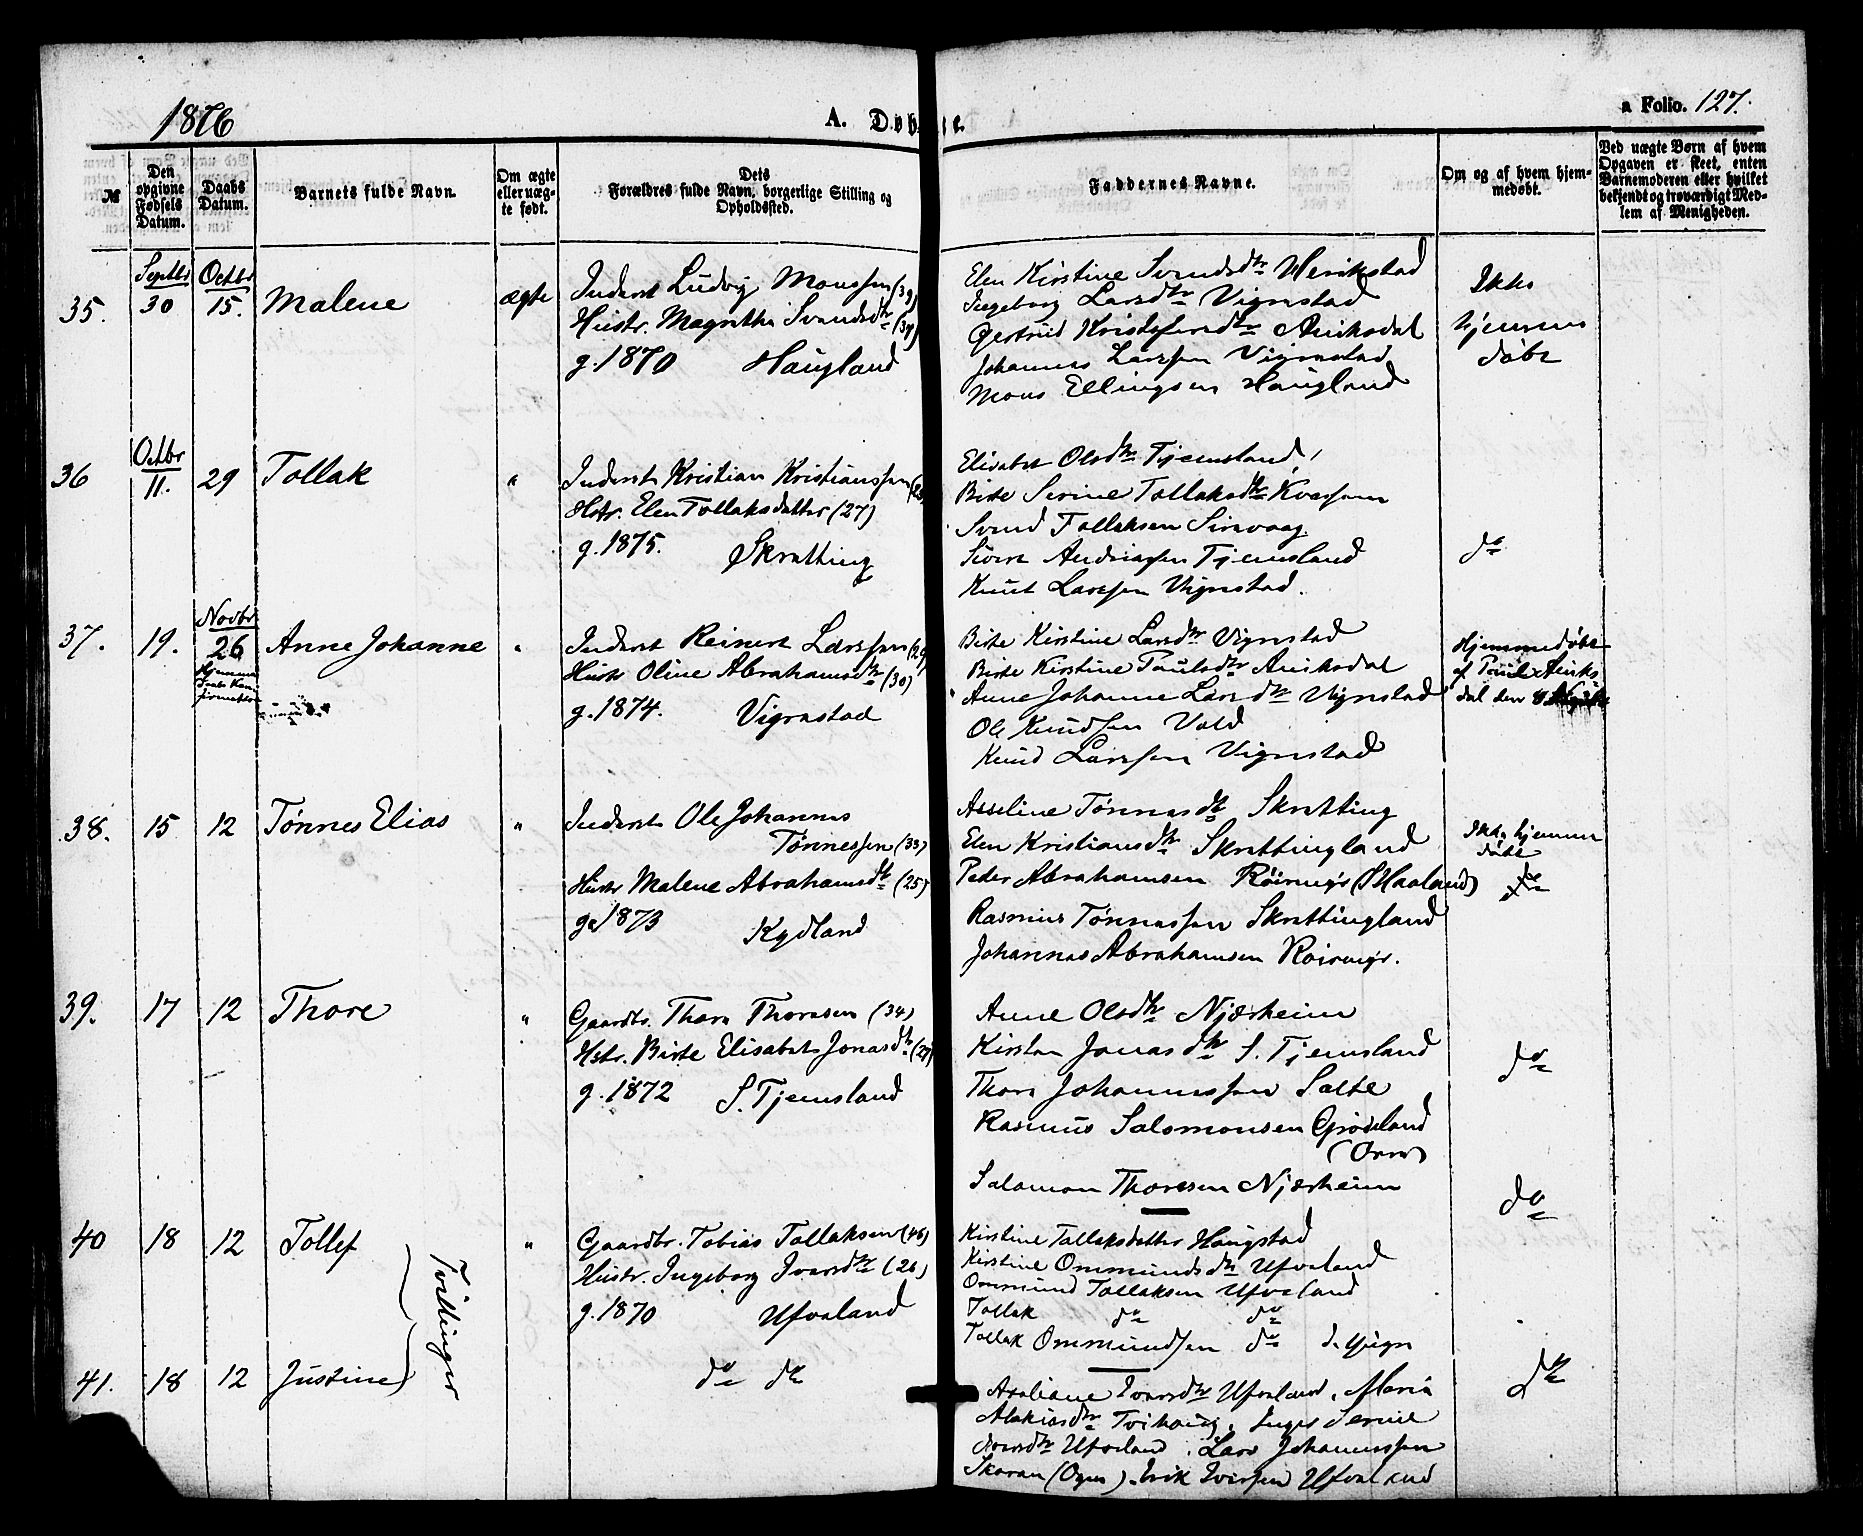 1876
A. Døbte.
a Folio. 127.
№
Den opgivne Fødsels Datum.
Daabs Datum.
Barnets fulde Navn.
Om ægte eller uægte født.
Dets Forældres fulde Navn, borgerlige Stilling og Opholdssted.
Faddernes Navne.
Om og af hvem hjemmedøbt.
Ved uægte Børn af hvem Opgaven er skeet, enten Barnemoderen eller hvilket bekjendt og troværdigt Medlem af Menigheden.
35.
Septbr
30
Octbr
15.
Malene
ægte
Inderst Ludvig Monssen (39)
Hustr. Magrethe Svendsdtr
g. 1870 Haugland
Elen Kirstine Svendsdtr
Ingeborg Larsdtr Vigrestad
Gertrud Kristofersdtr
Johannes Larssen Vigrestad
Mons Ellingsen Haugland
Ikke
hjemme
døbt
36
Octbr
11.
29
Tollak
"
Inderst Kristian Kristianssen
Hstr. Elen Tollaksdatter (27)
g. 1875. Skratting
Elisabet Olsdtr Tjemsland
Birte Serine Tollaksdtr
Svend Tollaksen Sirevaag
Sivert Andreassen Tjemsland
Knut Larssen Vigrestad.
do
37.
19.
Novbr
26
Anne Johanne
"
Inderst Reinert Larssen
Hustr Oline Abrahamsdtr (30)
g. 1874. Vigrestad
Birte Kirstine Larsdtr Vigrestad
Birte Kirstine Paulsdtr
Anne Johanne Larsdtr Vigrestad
Ole Knudsen Vold
Knud Larssen Vigrestad
Hjemmedøbt
af Poul
dal den
38.
15
12
Tønnes Elias
"
Inderst Ole Johannes
Tønnessen (33)
Hustr Malene Abrahamsdtr (25)
g. 1873 Kydland
Asseline Tønnesdtr Skratting
Elen Kristiansdtr Skrattingland
Peder Abrahamsen
Rasmus Tønnessen Skrattingland
Johannes Abrahamsen
Ikke hjemme
døbt
do
39.
17
12
Thore
"
Gaardbr. Thore Thoresen (34)
Hstr. Birte Elisabet Jonasdtr
g. 1872 S. Tjemsland
Anne Olsdtr Njærheim
Kirsten Jonasdtr S. Tjemsland
Thore Johannessen Salte
Rasmus Salomonsen Grødeland
(Orre)
Salomon Thoresen Njærheim
do
40
18
12
Tollef
Tvillinger
"
Gaardbr. Tobias Tollaksen (46)
Hustr. Ingeborg Iversdtr (26)
g. 1870 Ufvaland
Kirstine Tollaksdatter Haugstad
Kirstine Ommundsdtr Ufvaland
Ommund Tollaksen Ufvaland
Tollak do do
Tollak Ommundsen do
do
41.
18
12
Justine
do do
Iversdtr Ufvaland, Maria
Tvihaug, Inger Serine
Iversdtr Ufvaland, Lars Johannessen
(Ogne), Erik Iversen Ufvaland
do